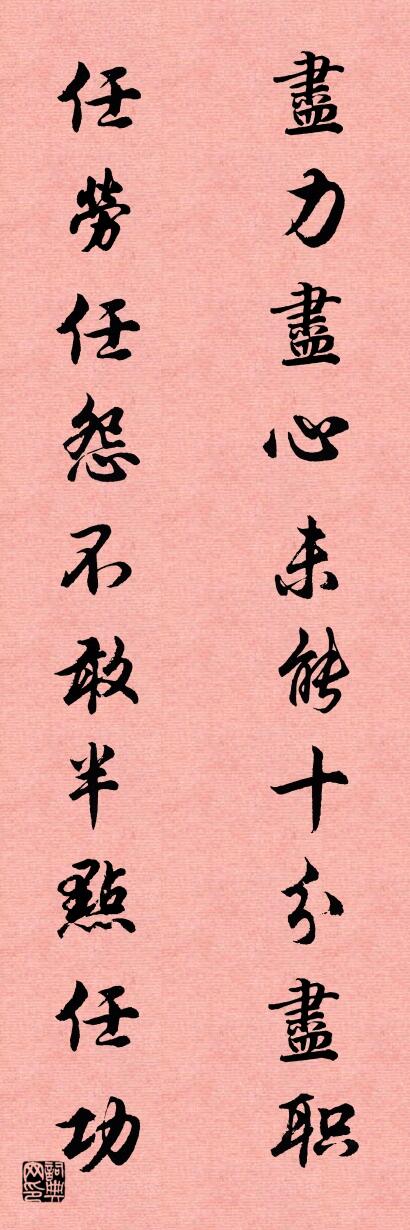 盡力盡心未能十分盡职
任勞任怨不敢半點任功
詞典网印